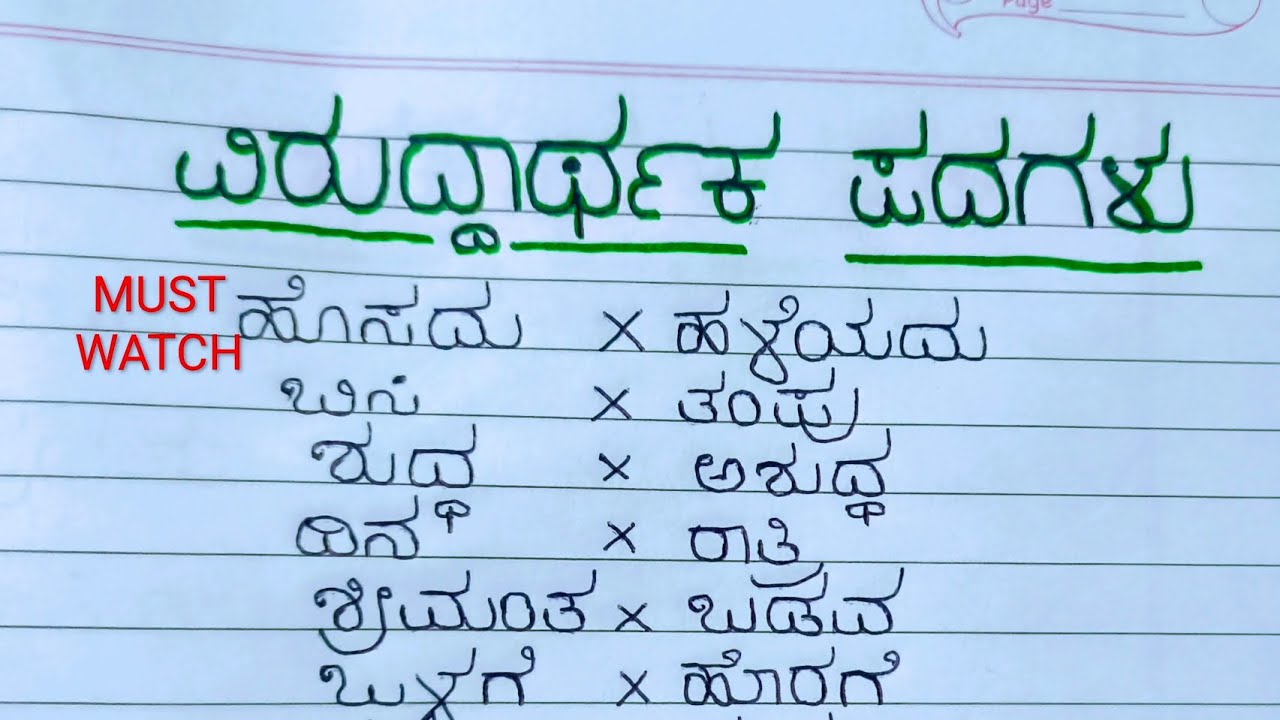 Page
ವಿರುದ್ಧಾರ್ಥಕ ಪದಗಳು
MUST WATCH
ಹೊಸದು × ಹಳೆಯದು
ಬಿಸಿ × ತಂಪು
ಶುದ್ಧ × ಅಶುದ್ಧ
ದಿನ × ರಾತ್ರಿ
ಶ್ರೀಮಂತ × ಬಡವ
ಒಳಗೆ × ಹೊರಗೆ